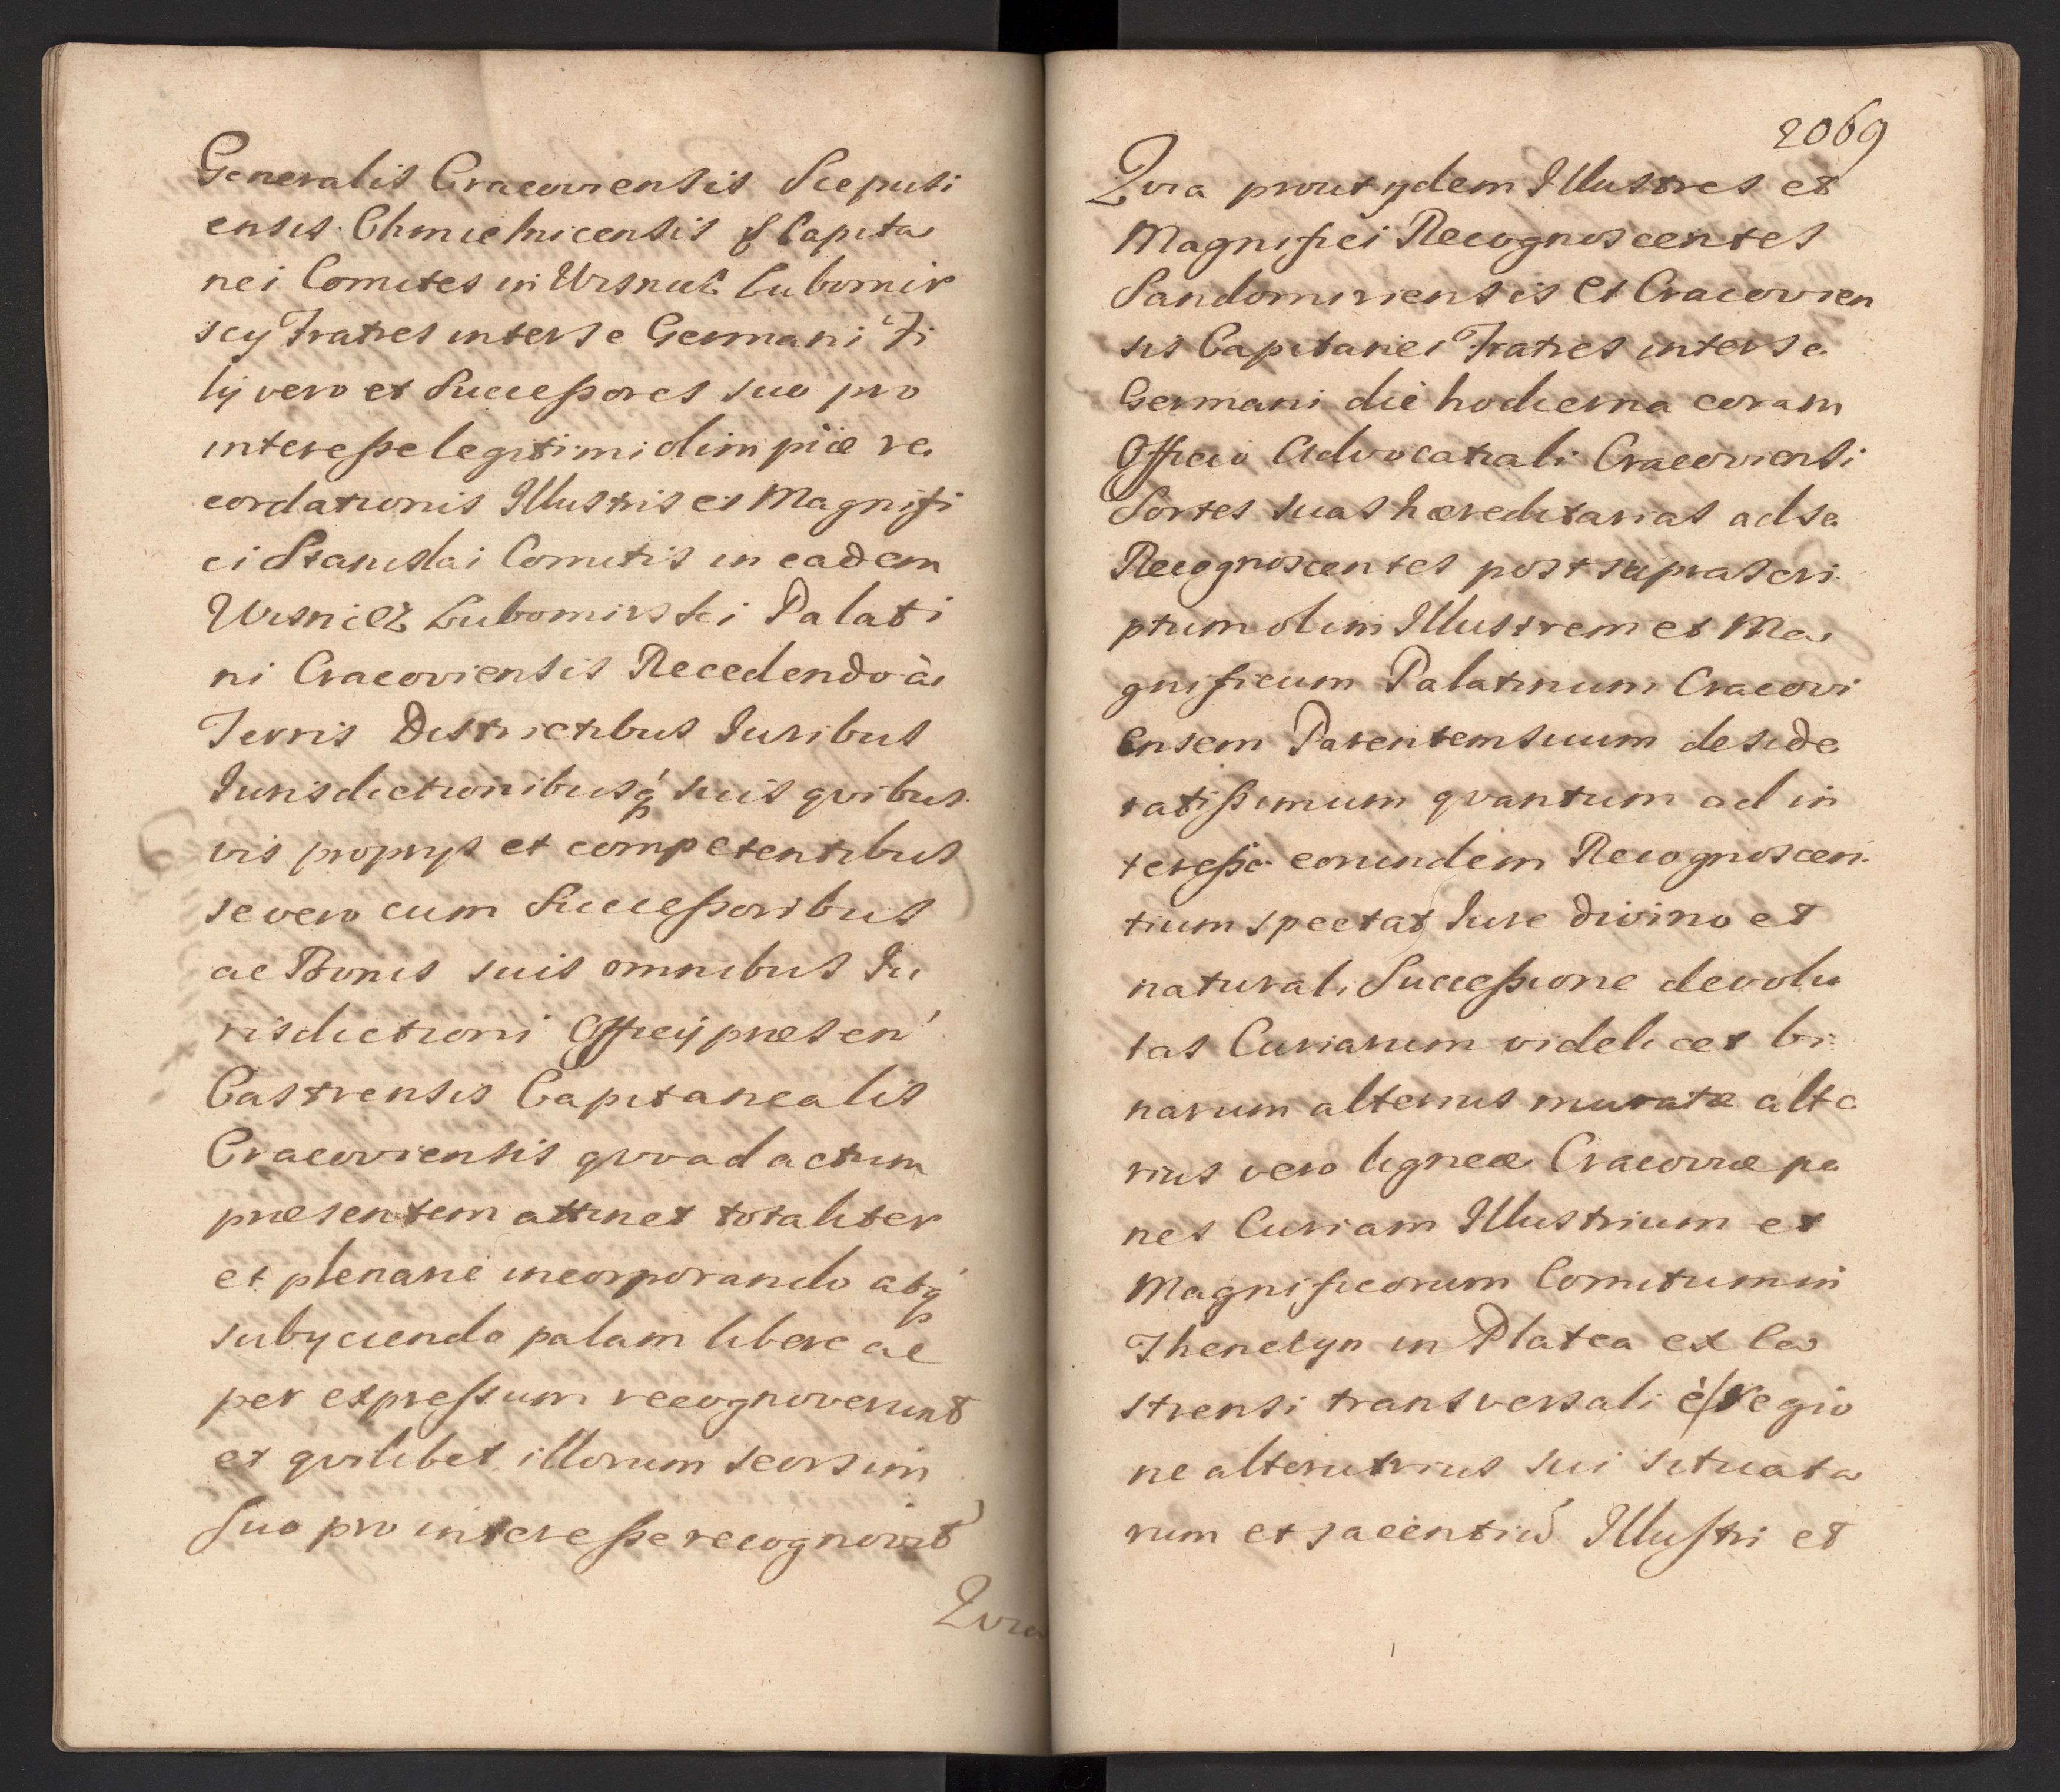 Generalis Cracoviensis Scepusi
ensis Chmielnicensis & Capita
nei Comites in Wisnicz Lubomir
scy Fratres inter se Germani Fi
lij vero et Successores suo pro
interesse legitimi olim piæ re
cordationis Illustris et Magnifi
ci Stanislai Comitis in eadem
Wisnicz Lubomirski Palati
ni Cracoviensis Recedendo à
Terris Districtibus Iuribus
Iurisdictionibusq́ suis qvibus
vis proprys et competentibus
se vero cum Successoribus
ac Bonis suis omnibus Iu
risdictioni Officij præsen'
Castrensis Capitanealis
Cracoviensis qvoad actum
præsentem attinet totaliter
et plenarie incorporando atq́
subyciendo palam libere ac
per expressum recognoverunt
et qvilibet illorum seorsim
Suo pro interesse recognovit
Qvia
2069
Qvia prout ydem Illustres et
Magnifici Recognoscentes
Sandomiriensis et Cracovien
sis Capitanei Fratres inter se
Germani die hodierna coram
Officio Advocatiali Cracoviensi
Sortes suas hæreditarias ad se
Recognoscentes post suprascri
ptum olim Illustrem et Ma
gnificum Palatinum Cracovi
ensem Parentem suum deside
ratissimum qvantum ad in
teresse eorundem Recognoscen
tium spectat Iure divino et
naturali Successione devolu
tas Curiarum videlicet bi
narum alterius muratæ alte
rius vero ligneæ Cracoviæ pe
nes Curiam Illustrium et
Magnificorum Comitum in
Thenczyn in Platea ex Ca
strensi transversali è regio
ne alterutrius sui situata
rum et jacentiu᷈ Illustri et